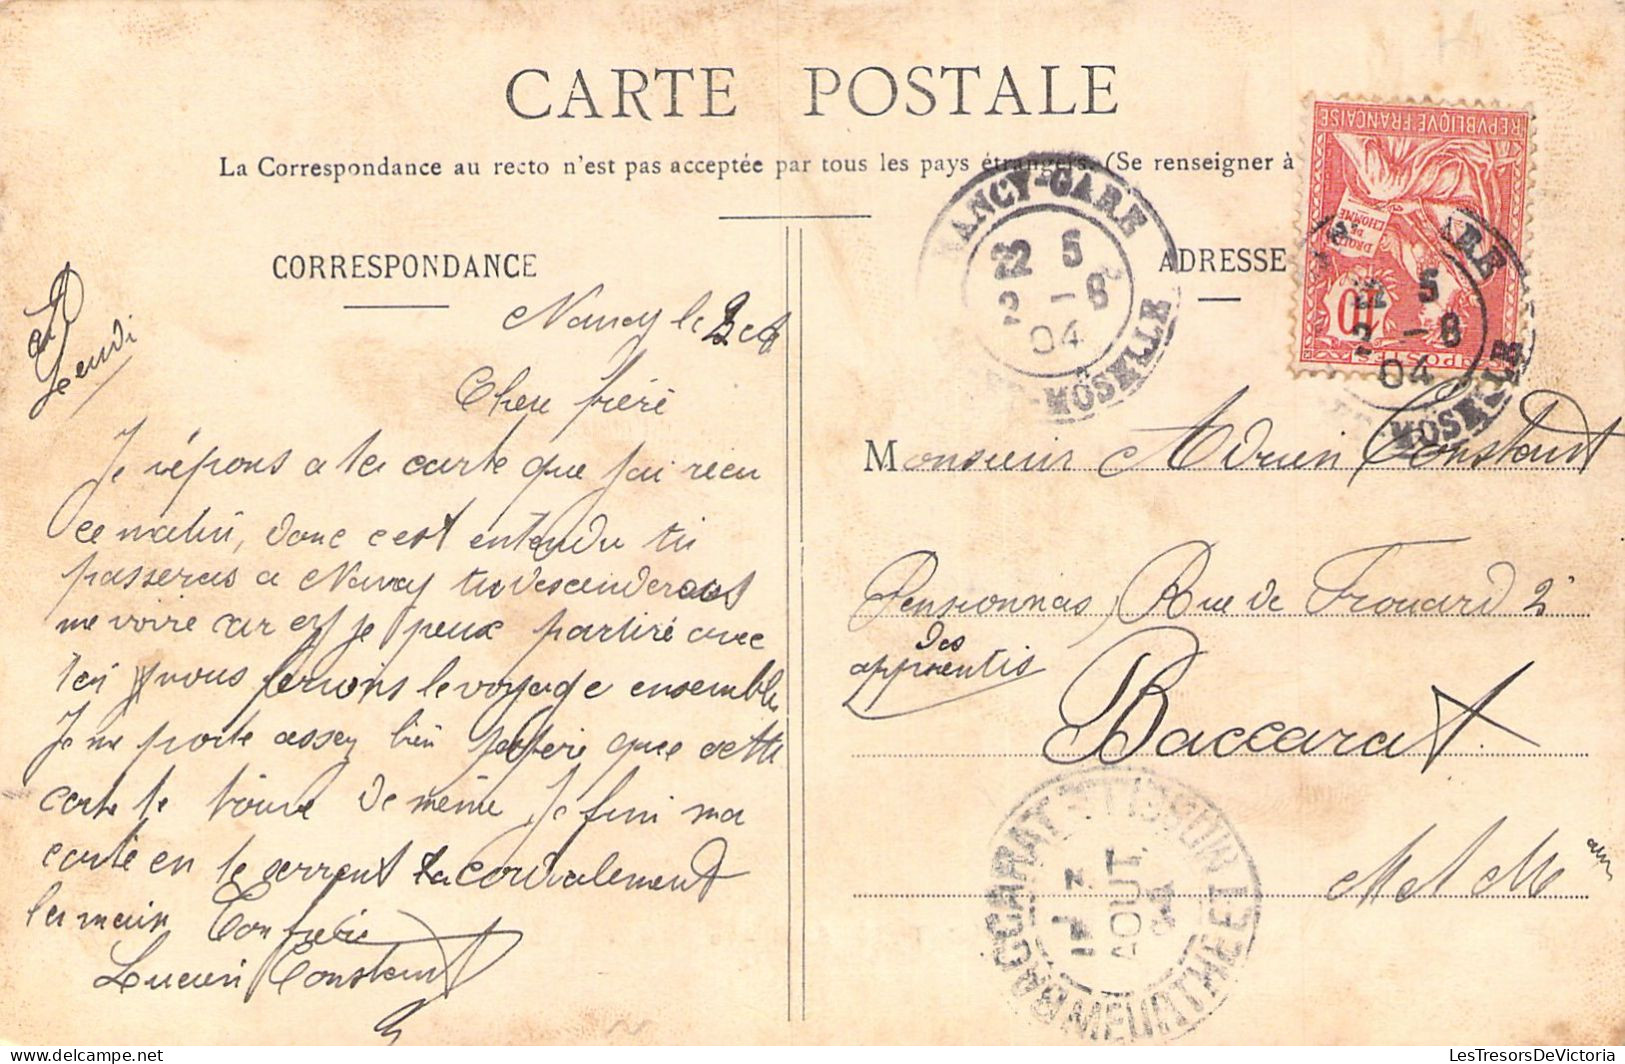 CARTE POSTALE
La Correspondance au recto n'est pas acceptée par tous les pays étrangers. (Se renseigner à
CORRESPONDANCE
à Jeudi
Nancy le 2
Cher frère
Je répons a ta carte que jai recu
ce matin, donc cest entendu tu
passeras a Nancy tu descenderas
me voire car je peux partire avec
toi nous ferions le voyage ensemble
Je me porte assey bien jespere que cette
carte te trouve de même. Je fini ma
carte en te serrent cordialement
la main Ton frère
Lucien Constant
ADRESSE
Monsieur Adrien Constant
Pensionnas Rue de Frouard 2
des
apprentis
Baccarat
M et Mlle
REPVBLIQVE FRANÇAISE
DROITS
DE
L'HOMME
10
POSTES
NANCY-GARE
22 5
2 -8
04
MOSELLE
ARE
22 5
2 -8
04
MOSELLE
BACCARAT
AOUT
04
MEURTHE ET
LesTresorsDeVictoria